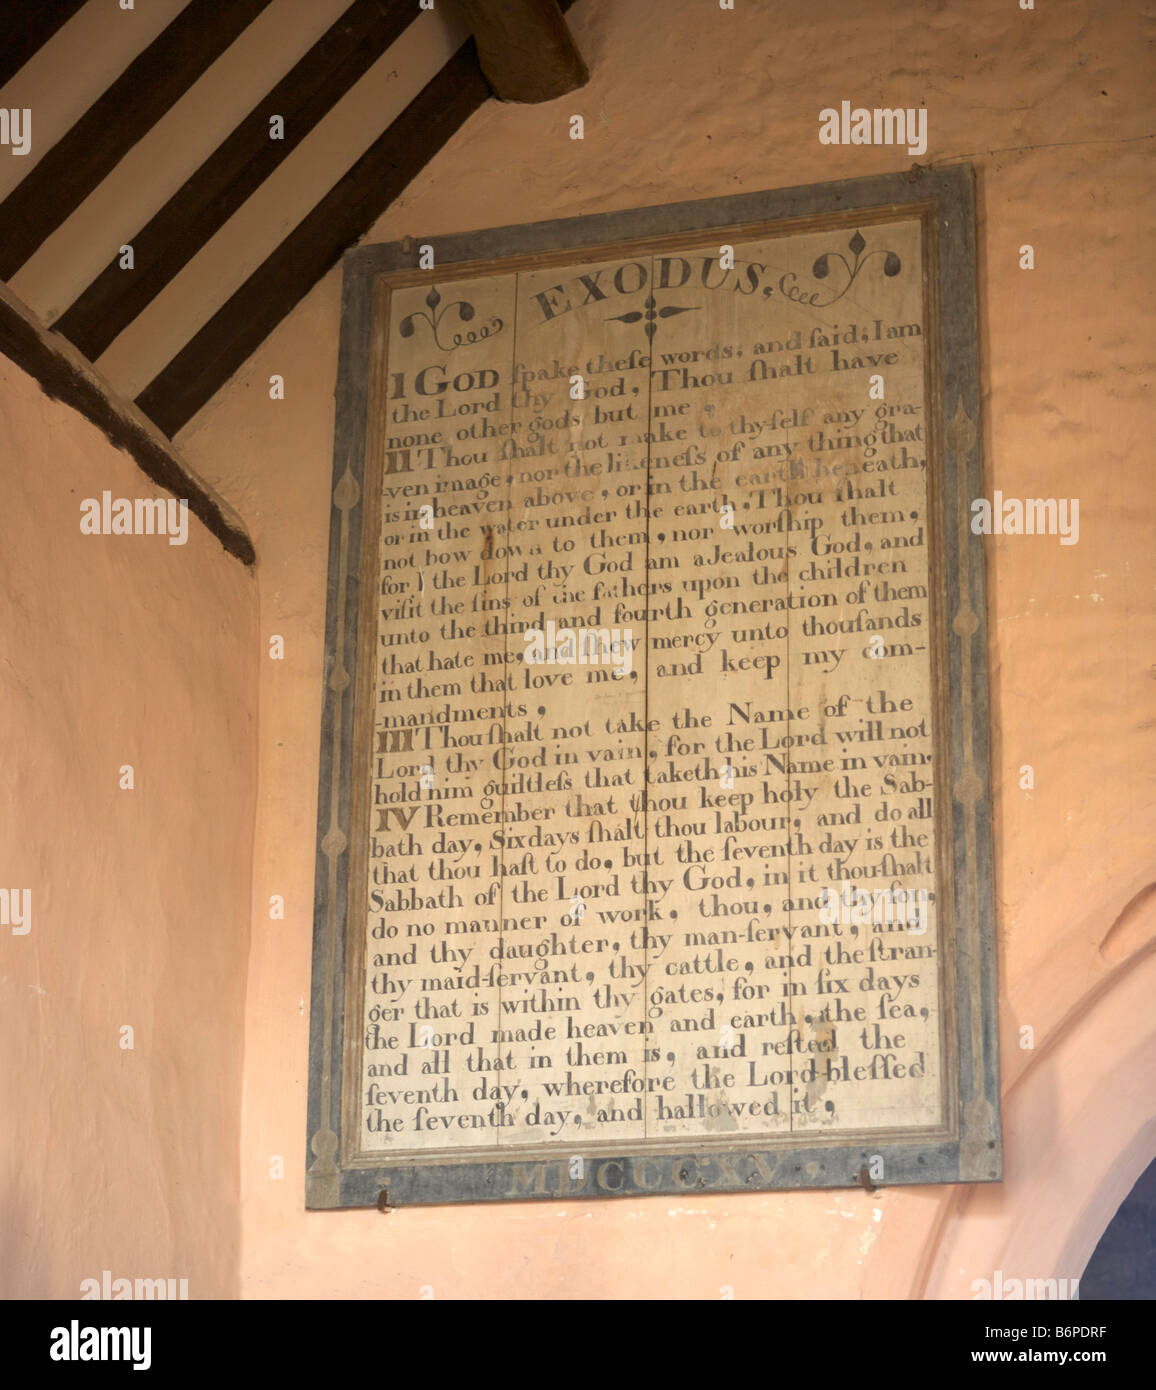 EXODUS.
I GOD ſpake theſe words, and ſaid; I am
the Lord thy God, Thou ſhalt have
none other gods but me,
II Thou ſhalt not make to thy-ſelf any gra-
-ven image, nor the likeneſs of any thing that
is in heaven above, or in the earth beneath,
or in the water under the earth, Thou ſhalt
not bow down to them, nor worſhip them,
for I the Lord thy God am a Jealous God, and
viſit the ſins of the fathers upon the children
unto the third and fourth generation of them
that hate me, and ſhew mercy unto thouſands
in them that love me, and keep my com-
-mandments,
III Thou ſhalt not take the Name of the
Lord thy God in vain, for the Lord will not
hold him guiltleſs that taketh his Name in vain.
IV Remember that thou keep holy the Sab-
bath day, Six days ſhalt thou labour, and do all
that thou haſt to do, but the ſeventh day is the
Sabbath of the Lord thy God, in it thou-ſhalt
do no manner of work, thou, and thy ſon,
and thy daughter, thy man-ſervant, and
thy maid-ſervant, thy cattle, and the ſtran-
ger that is within thy gates, for in ſix days
the Lord made heaven and earth, the ſea,
and all that in them is, and reſted the
ſeventh day, wherefore the Lord-bleſſed
the ſeventh day, and hallowed it,
alamy
Image ID: B6PDRF
www.alamy.com